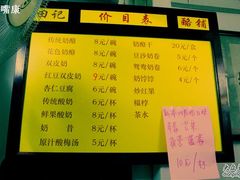 嘴康
田记 价目表 醋铺
传统奶酪 8元/碗
花色奶酪 8元/碗
双皮奶 8元/碗
红豆双皮奶 9元/碗
杏仁豆腐 6元/碗
传统酸奶 6元/杯
鲜果酸奶 8元/杯
奶昔 8元/杯
原汁酸梅汤 5元/杯
奶酪干 20元/盒
豆沙奶卷 5元/个
鸳鸯奶卷 6元/个
奶饽饽 4元/个
炒红果
福桲
茶水
10元/杯